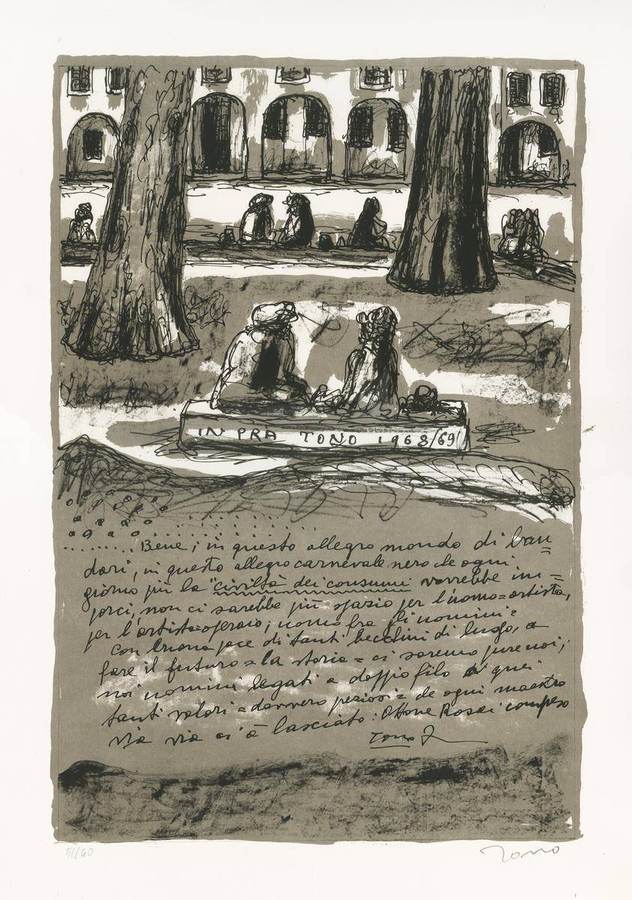 IN PRA TONO 1968/69
Bene, in questo allegro mondo di ban=
dari, in questo allegro carnevale nero che ogni
giorno più la "civiltà dei consumi" vorrebbe im=
porci, non ci sarebbe più spazio per l'uomo=artista,
per l'artista=operaio; uomo fra gli uomini=
con buona pace di tanti becchini di lusso, a
fare il futuro=la storia=ci saremo pure noi;
noi uomini legati a doppio filo a quei
tanti valori=davvero preziosi=che ogni maestro
via via ci à lasciato: Ottone Rosai compreso
Tono
51/60
Tono